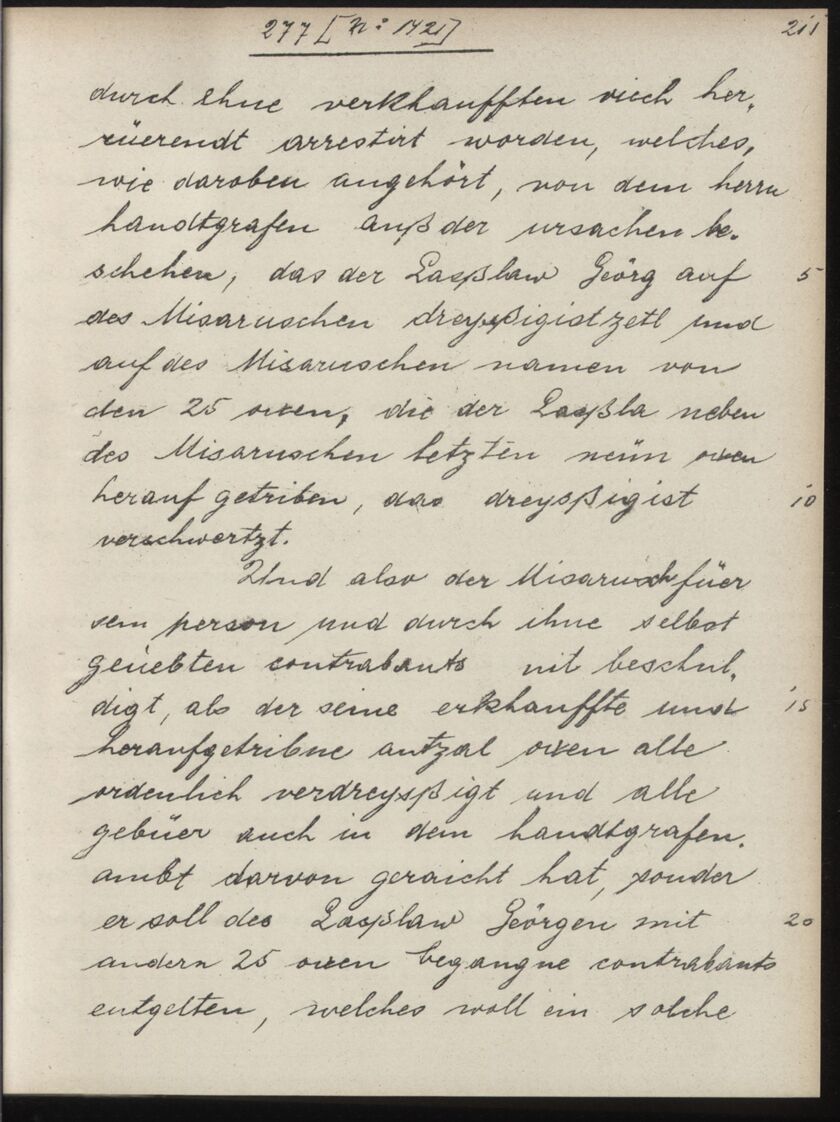 277 [N: 142] 211
durch ihne verkhaufften viech her-
rüerendt arrestirt worden, welches,
wie daroben angehört, von dem herrn
handtgrafen auß der ursachen be-
schehen, das der Laßlaw Geörg auf 5
des Misaruschen dreyßigistzetl und
auf des Misaruschen namen von
den 25 oxen, die der Laßla neben
des Misaruschen letzten neün oxen
herauf getriben, das dreysßigist 10
verschwertzt.
Und also der Misarusch füer
sein person und durch ihne selbst
geüebten contrabants nit beschul-
digt, als der seine erkhauffte und 15
heraufgetribne antzal oxen alle
ordenlich verdreysßigt und alle
gebüer auch in dem handtgrafen-
ambt darvon geraicht hat, sonder
er soll des Laßlaw Geörgen mit 20
andern 25 oxen begangne contrabants
entgelten, welches woll ein solche